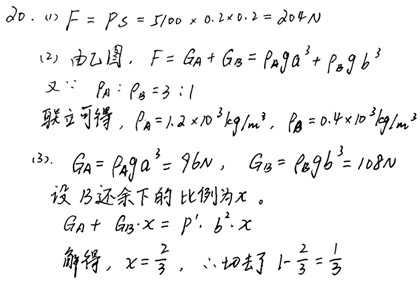 20. (1) F = PS = 5100 × 0.2 × 0.2 = 204N
(2) 由乙图, F = GA + GB = ρAga³ + ρBgb³
又∵ ρA : ρB = 3 : 1
联立可得, ρA = 1.2×10³kg/m³, ρB = 0.4×10³kg/m³
(3). GA = ρAga³ = 96N, GB = ρBgb³ = 108N
设B还余下的比例为x。
GA + GB·x = p'·b²·x
解得, x = 2/3, ∴切去了 1 - 2/3 = 1/3